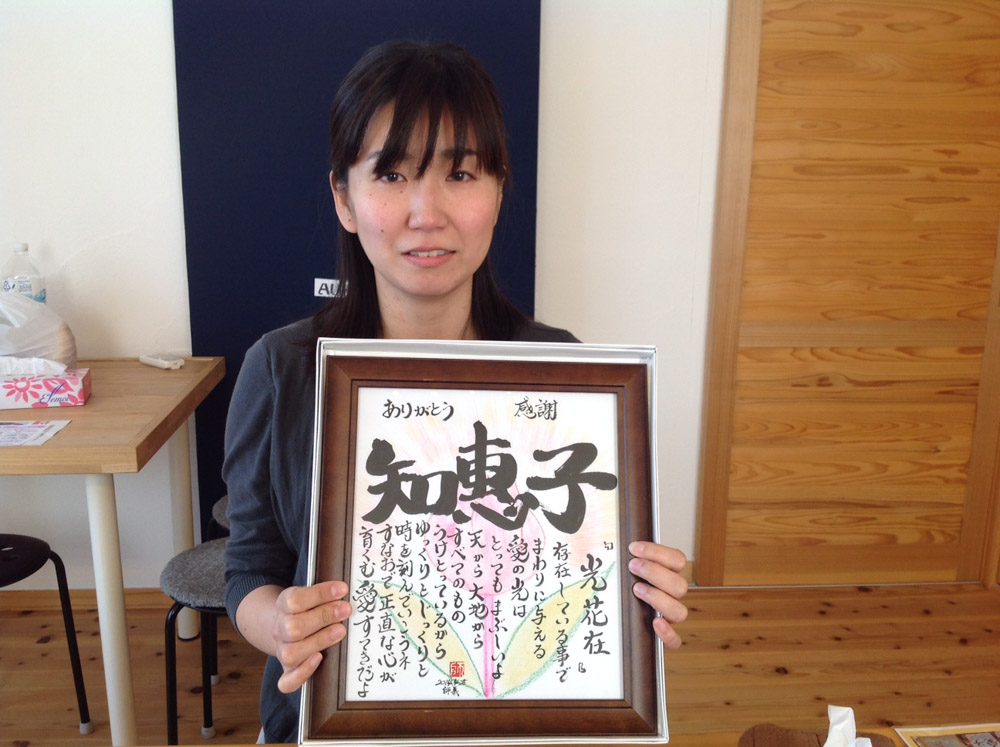 ありがとう
感謝
知恵子
『光花在』
存在している事で
まわりに与える
愛の光は
とってもまぶしいよ
天から大地から
すべてのもの
うけとっているから
ゆっくりとじっくりと
時を刻んでいこうネ
すなおで正直な心が
育くむ愛すてきだよ
AU